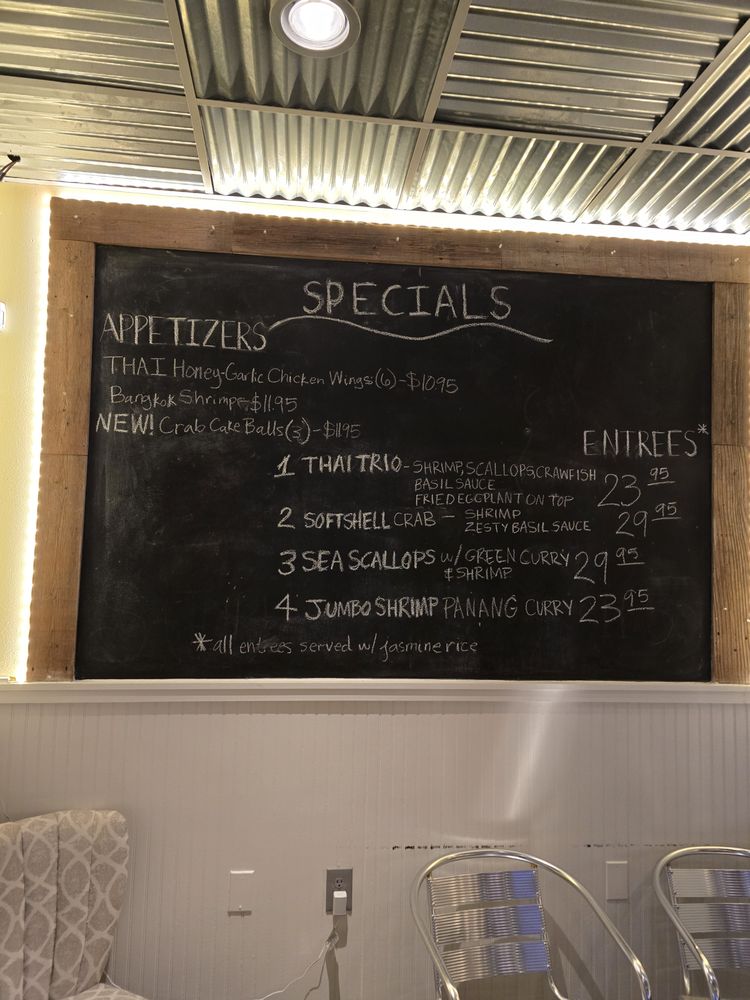 SPECIALS
APPETIZERS
THAI Honey-Garlic Chicken Wings (6) - $10.95
Bangkok Shrimp - $11.95
NEW! Crab Cake Balls (3) - $11.95
ENTREES*
1 THAI TRIO - SHRIMP, SCALLOPS, CRAWFISH
BASIL SAUCE
FRIED EGGPLANT ON TOP 23 95
2 SOFTSHELL CRAB - SHRIMP
ZESTY BASIL SAUCE 29 95
3 SEA SCALLOPS w/ GREEN CURRY 29 95
& SHRIMP
4 JUMBO SHRIMP PANANG CURRY 23 95
*all entrees served w/ jasmine rice